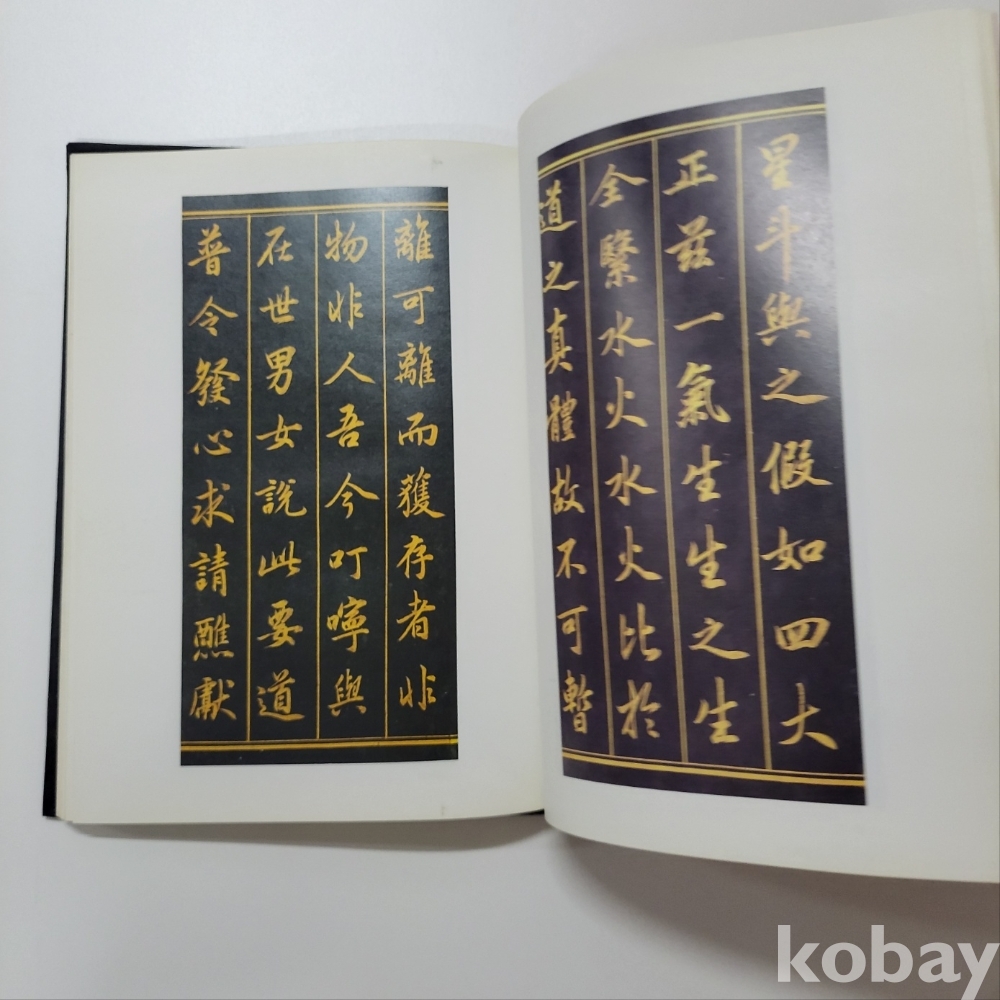 星斗與之假如四大
正茲一氣生生之生
全繄水火水火比於
道之真體故不可暫
離可離而獲存者非
物非人吾今叮嚀與
在世男女說此要道
普令發心求請醮獻
kobay